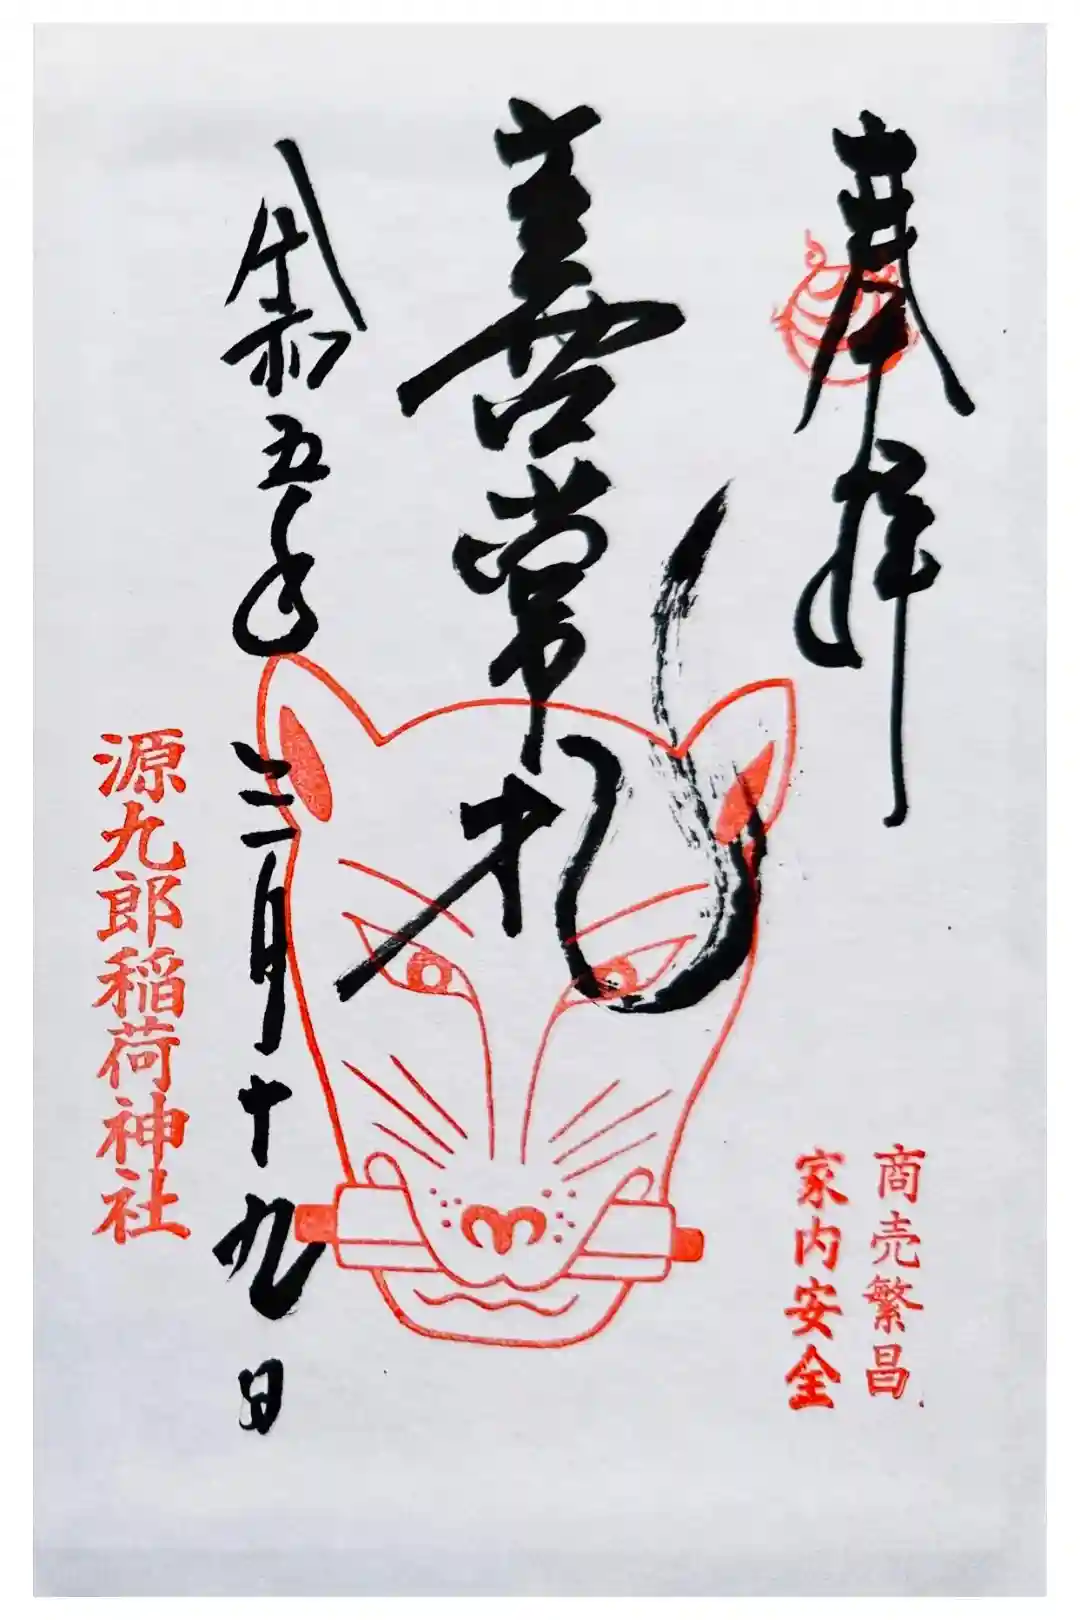 奉拝
商売繁昌
家内安全
善常
令和五年三月十九日
源九郎稲荷神社